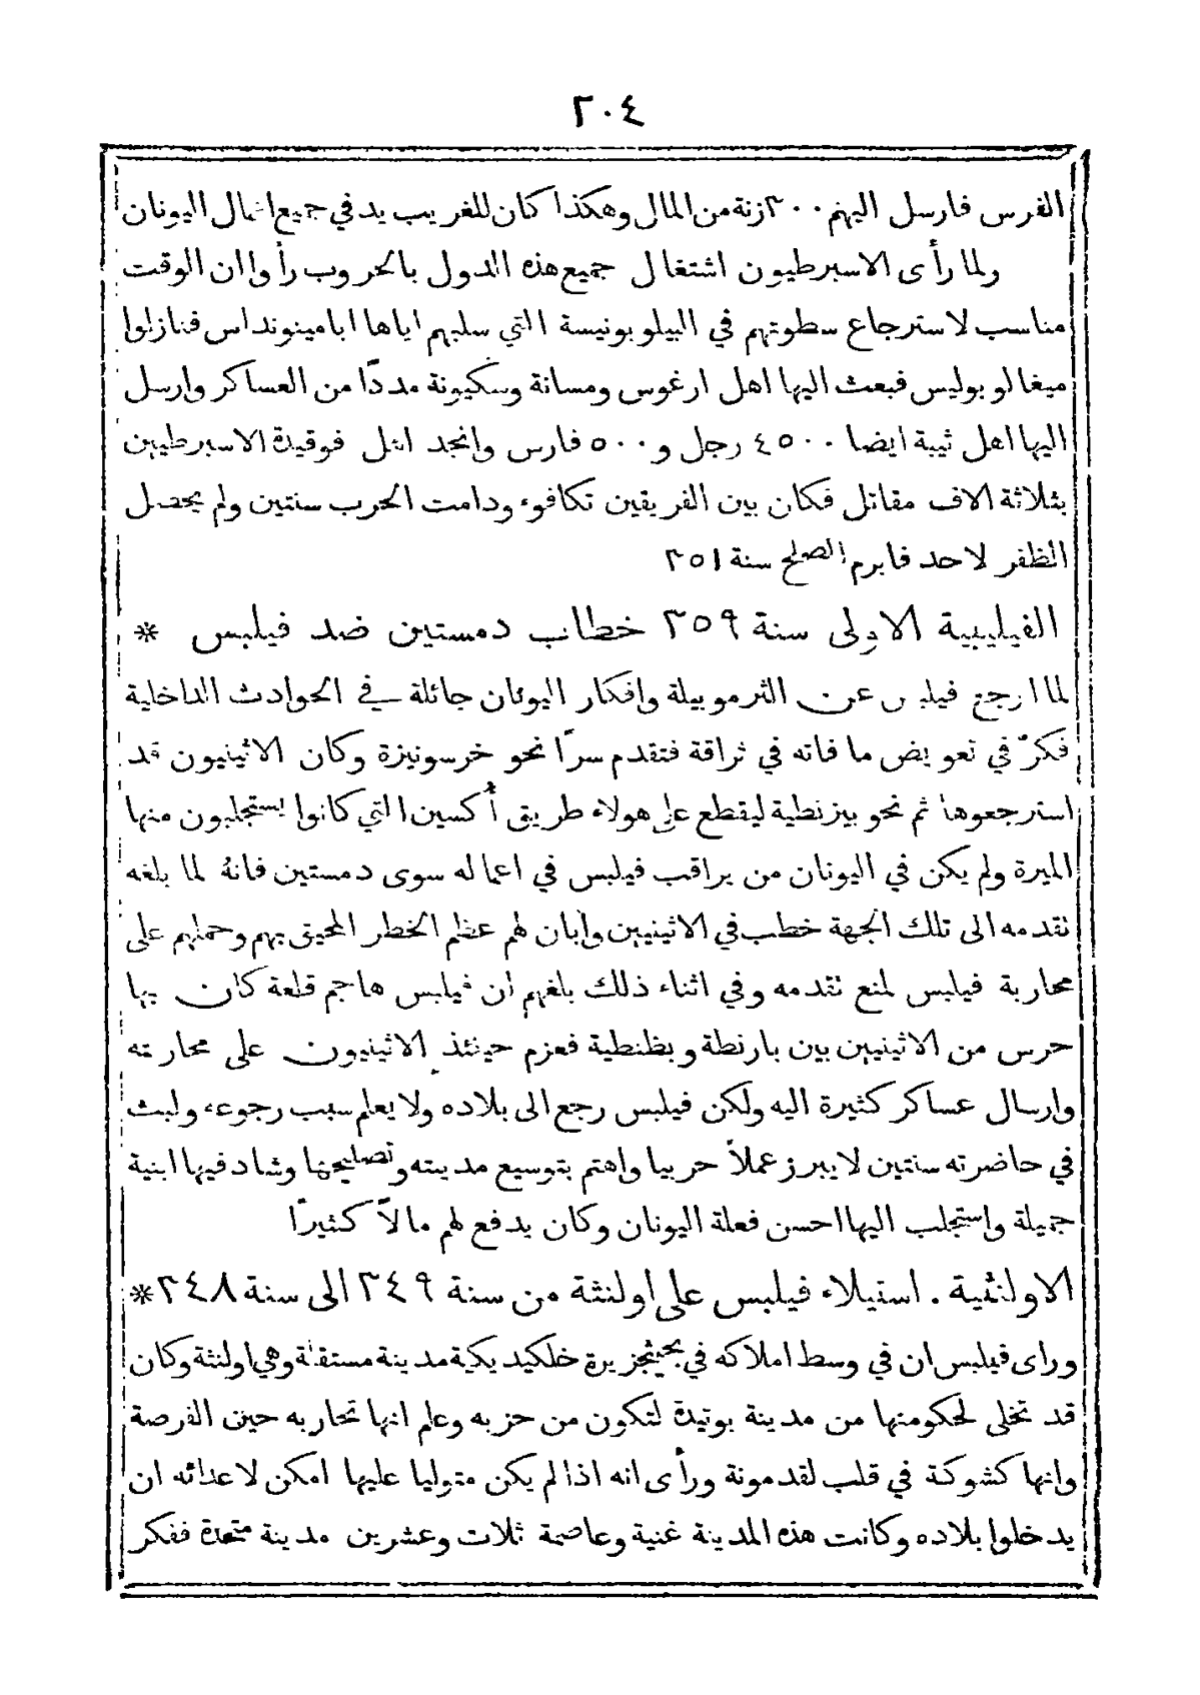 ٢٠٤
الفرس فارسل اليهم ٣٠٠ زنة من المال وهكذا كان للغريب يد في جميع اعمال اليونان
ولما رأى الاسبرطيون اشتغال جميع هذه الدول بالحروب رأوا ان الوقت
مناسب لاسترجاع سطوتهم في البيلوبونيسة التي سلبهم اياها ابامينونداس فنازلوا
ميغالوبوليس فبعث اليها اهل ارغوس ومسانة وسكيونة مددًا من العساكر وارسل
اليها اهل ثيبة ايضا ٤٥٠٠ رجل و ٥٠٠ فارس وانجد اهل فوقيدة الاسبرطيين
بثلاثة الاف مقاتل فكان بين الفريقين تكافوء ودامت الحرب سنتين ولم يحصل
الظفر لاحد فابرم الصلح سنة ٣٥١
الفيليبية الاولى سنة ٣٥٩ خطاب دمستين ضد فيلبس *
لما ارجع فيلبس عن الثرموبيلة وافكار اليونان جائلة في الحوادث الداخلية
فكرّ في تعويض ما فاته في ثراقة فتقدم سرًّا نحو خرسونيزة وكان الاثينيون قد
استرجعوها ثم نحو بيزنطية ليقطع على هولاء طريق أكسين التي كانوا يستجلبون منها
الميرة ولم يكن في اليونان من يراقب فيلبس في اعماله سوى دمستين فانهُ لما بلغه
تقدمه الى تلك الجهة خطب في الاثينيين وابان لهم عظم الخطر المحيق بهم وحملهم على
محاربة فيلبس لمنع تقدمه وفي اثناء ذلك بلغهم ان فيلبس هاجم قلعة كان بها
حرس من الاثينيين بين بارنطة وبظنطية فعزم حينئذ الاثينيون على محاربته
وارسال عساكر كثيرة اليه ولكن فيلبس رجع الى بلاده ولا يعلم سبب رجوعه ولبث
في حاضرته سنتين لا يبرز عملاً حربيا واهتم بتوسيع مدينته وتصليحها وشاد فيها ابنية
جميلة واستجلب اليها احسن فعلة اليونان وكان يدفع لهم مالاً كثيرًا
الاولنثية . استيلاء فيلبس على اولنثة من سنة ٣٤٩ الى سنة ٣٤٨ *
وراى فيلبس ان في وسط املاكه في بحيثجزيرة خلكيديكية مدينة مستقلة وهي اولنثة وكان
قد تخلى لحكومتها من مدينة بوتيدة لتكون من حزبه وعلم انها تحاربه حين الفرصة
وانها كشوكة في قلب لقدمونة ورأى انه اذا لم يكن متوليا عليها امكن لاعدائه ان
يدخلوا بلاده وكانت هذه المدينة غنية وعاصمة ثلاث وعشرين مدينة متحدة ففكر